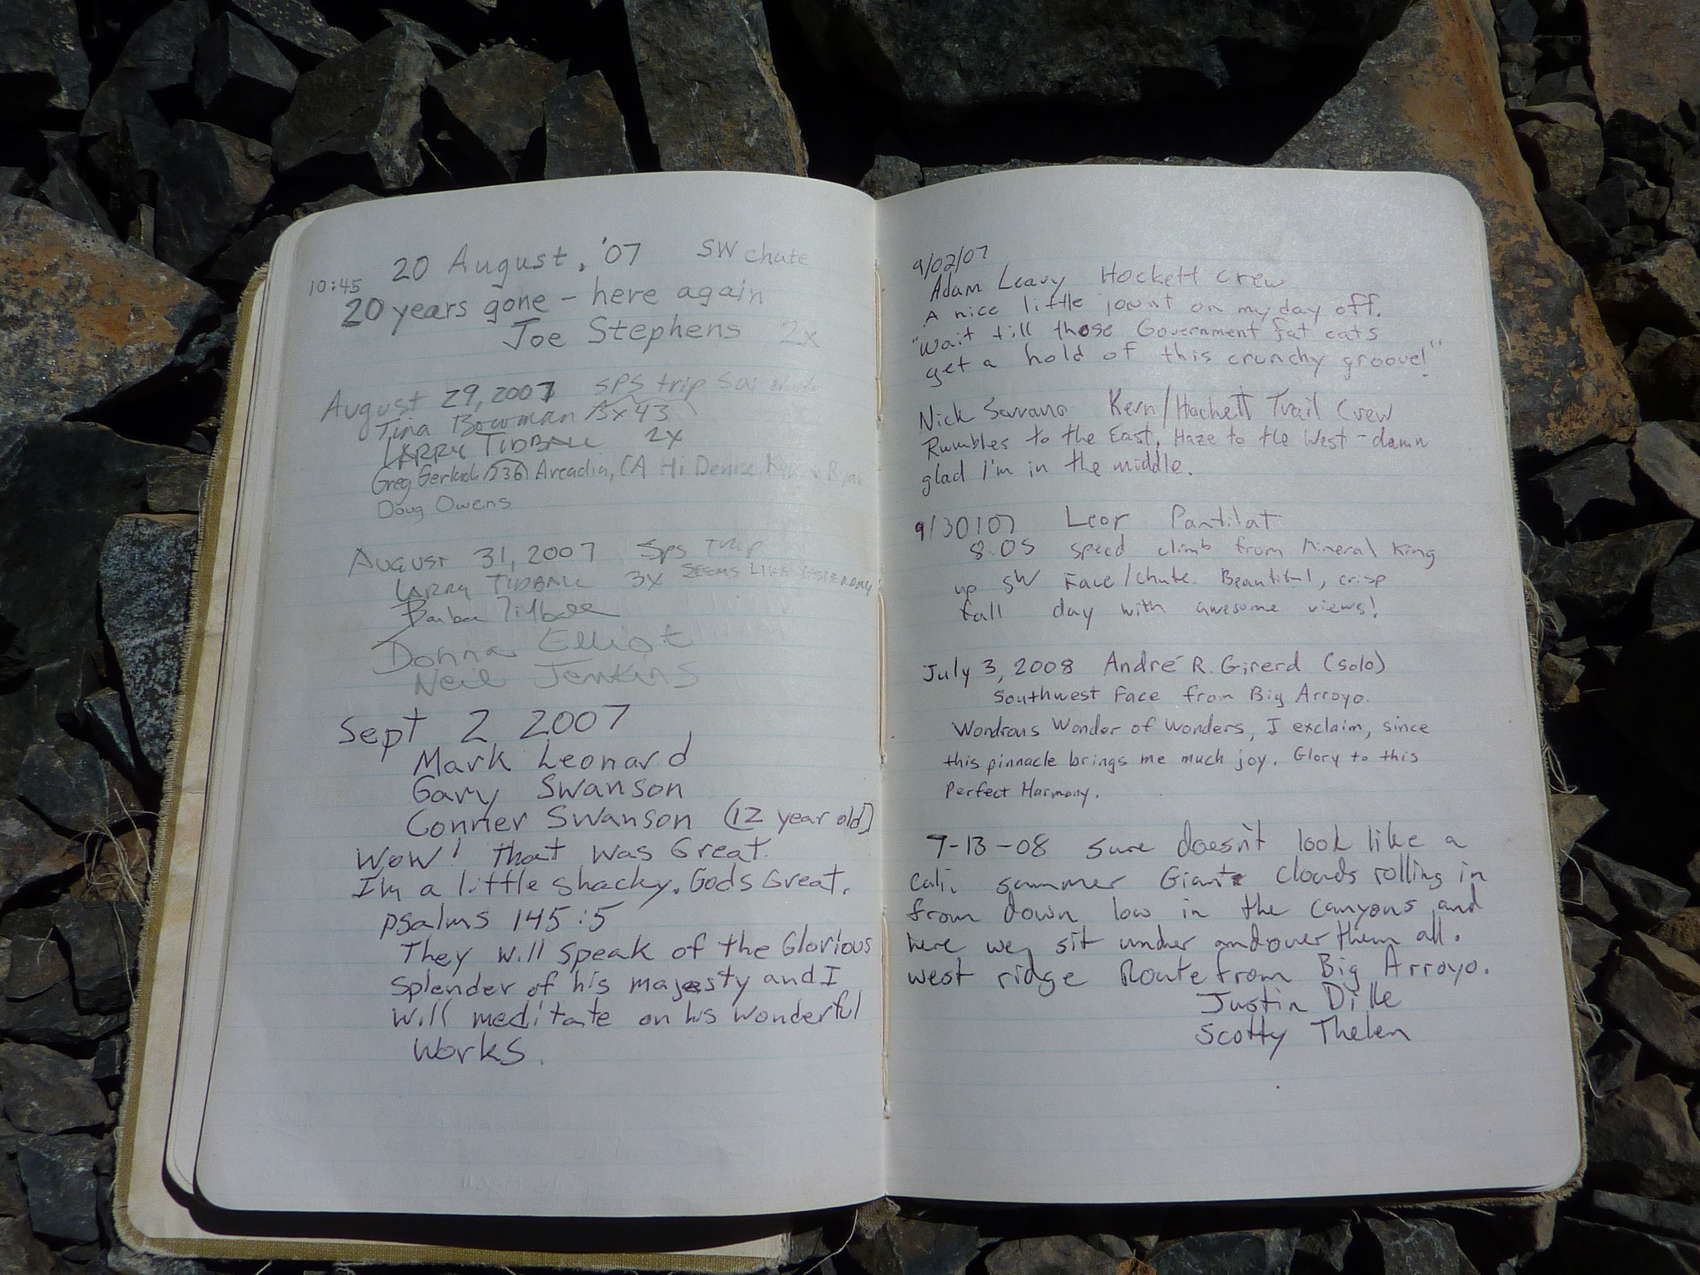 20 August, '07 SW chute
10:45
20 years gone - here again
Joe Stephens 2x
August 29, 2007 SPS trip SW
Tina Bowman
LARRY TIDBALL 2x
Greg Gerlach Arcadia, CA Hi Denise
Doug Owens
August 31, 2007 SPS Trip
LARRY TIDBALL 3x SEEMS LIKE YESTERDAY
Barbee Tidball
Donna Elliot
Neil Jenkins
Sept 2 2007
Mark Leonard
Gary Swanson
Conner Swanson (12 year old)
Wow! That was Great.
I'm a little shacky. Gods Great.
psalms 145:5
They will speak of the Glorious
splender of his majesty and I
will meditate on his wonderful
works.
9/02/07
Adam Leavy Hockett Crew
A nice little jount on my day off.
"Wait till those Government fat cats
get a hold of this crunchy groove!"
Nick Serrano Kern/Hockett Trail Crew
Rumbles to the East, Haze to the West - damn
glad I'm in the middle.
9/30/07 Leor Pantilat
8:05 speed climb from Mineral King
up SW Face/chute. Beautiful, crisp
fall day with awesome views!
July 3, 2008 André R. Girerd (solo)
Southwest Face from Big Arroyo.
Wondrous Wonder of Wonders, I exclaim, since
this pinnacle brings me much joy. Glory to this
Perfect Harmony.
7-13-08 sure doesn't look like a
Cali. summer Giant clouds rolling in
from down low in the canyons and
here we sit under and over them all.
West ridge Route from Big Arroyo.
Justin Dille
Scotty Thelen